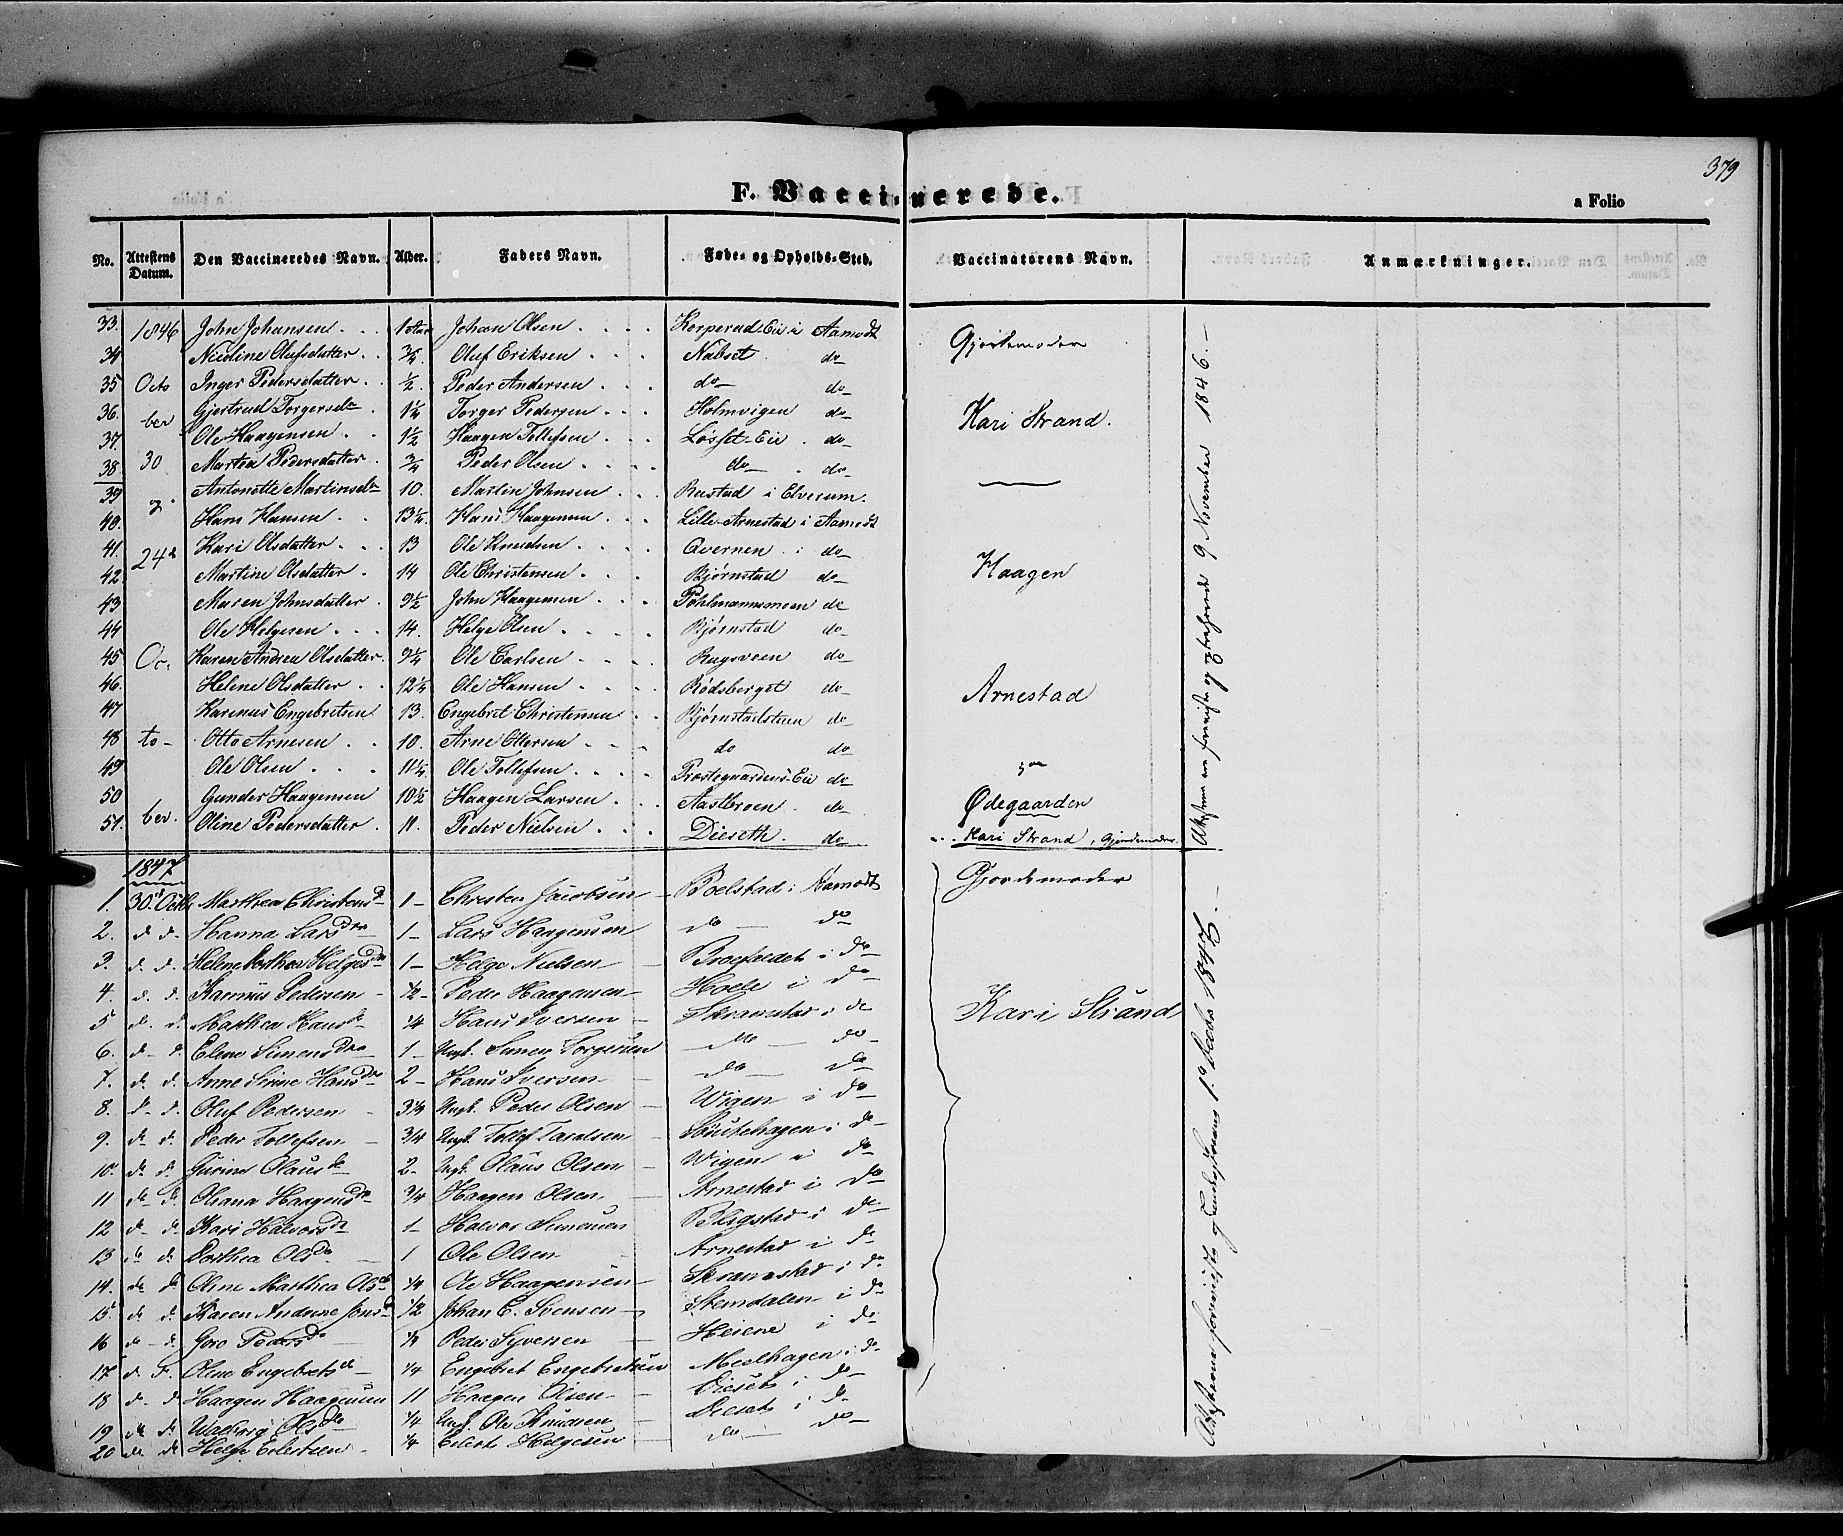 379
F. Vaccinerede.
a Folio
No. Attestens Datum. Den Vaccineredes Navn. Alder. Faders Navn. Føde- og Opholds-Sted. Vaccinatorens Navn. Anmærkninger.
33. 1846 John Johansen Johan Olsen i Aamodt
34 Nicoline Olufsdatter 3/4 Oluf Eriksen Nabset do Gjordemoder
35 Octo Inger Pedersdatter 1/2 Peder Andersen do do
36. ber Gjertrud Torgersdr 1 1/4 Torger Pedersen Holmvigen do Kari Strand.
37. Ole Haagensen 1 1/2 Haagen Tollefsen Løsset-Eie do
38 30 Martea Pedersdatter 3/4 Peder Olsen do do
39 og Antonette Martinsdr 10. Martin Johnsen Rustad i Elverum.
40. Hans Hansen 13 1/2 Hans Haagensen Lille-Arnestad i Aamodt
41. 24d Kari Olsdatter 13 Ole Knudsen Qvernen i do
42. Martine Olsdatter 14 Ole Christensen Bjørnstad do Haagen
43 Maren Johnsdatter 9 1/2 John Haagensen Pohlmannsmoen do
44 Ole Helgesen 14. Helge Olsen Bjørnstad do
45 Oc- Karen Andrea Olsdatter 9 1/4 Ole Carlsen Rugsveen do
46. Helene Olsdatter 12 1/4 Ole Hansen Rødsberget do Arnestad
47 Karenus Engebretsen 13. Engebret Christensen Bjørnstadsteen do
48 to- Otto Arnesen 10. Arne Ottersen do do
49 Ole Olsen 11 1/4 Ole Tollefsen Præstegaardens-Eie do
50 Gunder Haagensen 10 1/2 Haagen Larsen Aastbroen do Ødegaarden
51. ber. Oline Pedersdatter 11. Peder Nielsen Dieseth. do Kari Strand, Gjordemoder.
Attesterne 9 November 1846.
1847
1. 30d Octbr Marthea Christensd 1 Christen Jacobsen Boelstad i Aamodt Gjordemoder
2. d. d. Hanna Larsdtr 1 Lars Haagensen do do
3. d. d. Helene Dorthea Helgesdr 1 Helge Nielsen i do
4. d. d. Rasmus Pedersen 1/2 Peder Haagensen Hoele i do
5 d. d. Marthea Hansdr 1/4 Hans Iversen Skramstad i do Kari Strand
6. d. d. Elene Simensdtr 1 Ungk. Simen Torgersen do do
7. d. d. Anne Sirine Hansdtr 2 Hans Iversen do do
8. d. d. Oluf Pedersen 3 1/4 Ungk. Peder Olsen Wigen i do
9. d. d. Peder Tollefsen 3/4 Ungk. Tollef Taralsen i do
10. d. d. Olausdr 2 Ungk. Olaus Olsen Wigen i do
11 d. d. Oliana Haagensdr 3/4 Haagen Olsen Arnestad i do
12 d. d. Kari Halvorsdr 1 Halvor Simensen i do
13 d. d. Dorthea Olsdr 1 Ole Olsen Arnestad i do
14. d. d. Oline Marthea Olsdr 1/4 Ole Haagensen Skramstad i do
15. d. d. Karen Andrine Jonsd 1/2 Johan E. Stemdalen i do
16 d. d. Goro Pedersdr Peder Syversen Heiene i do
17. d. d. Oline Engebretsd 1/4 Engebret Engebretsen Moelhagen i do
18 d. d. Haagen Haagensen 11 Haagen Olsen Dieset i do
19 d. d. Walborg Olsdr 1/4 Ungk. Ole Knudsen Dieset i do
20 d. d. Helge Erlandsen 1/4 Helgesen do do
Attesterne 1847.